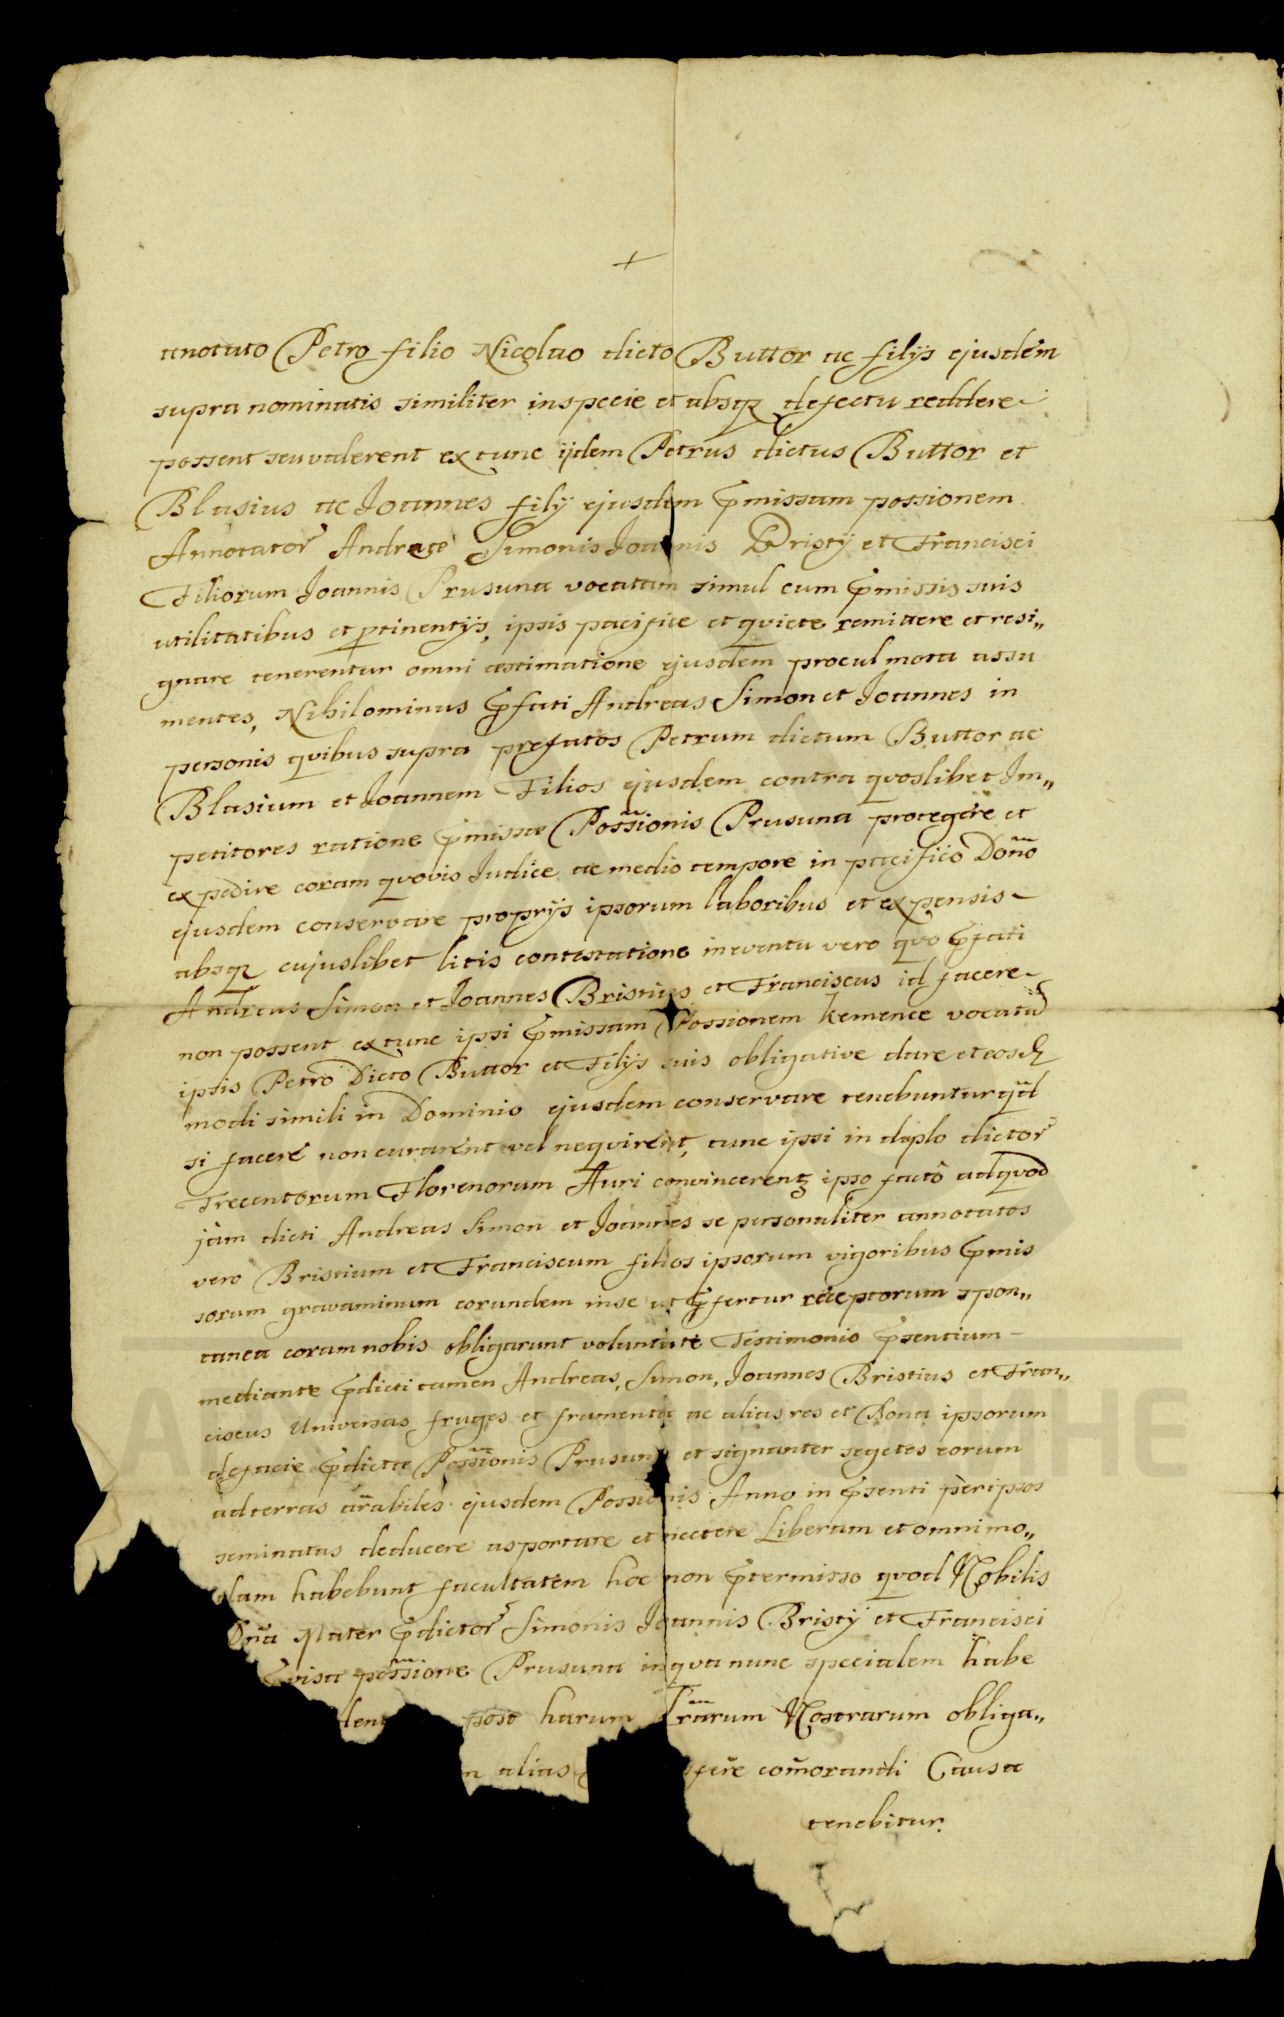 anotato Petro filio Nicolao dicto Buttor ac filijs ejusdem
supra nominatis similiter in specie et absq defectu reddere
possent seu valerent extunc ijdem Petrus dictus Buttor et
Blasius ac Joannes filij ejusdem p̃missam possionem
Annotator̃ Andreae Simonis Joannis Bristij et Francisci
Filiorum Joannis Prusuna vocatam simul cum p̃missis suis
utilitatibus et ptinentijs, ipsis pacifice et qviete remittere et resi„
gnare tenerentur omni aestimatione ejusdem procul mota assu
mentes, Nihilominus p̃fati Andreas Simon et Joannes in
personis qvibus supra prefatos Petrum dictum Buttor ac
Blasium et Joannem Filios ejusdem contra qvoslibet Im„
petitores ratione p̃missae Possĩonis Prusuna protegere et
expedire coram qvovis Judice ac medio tempore in pacifico Dom̃o
ejusdem conservare proprijs ipsorum laboribus et expensis
absq cujuslibet litis contestatione in eventu vero qvo p̃fati
Andreas Simon et Joannes Bristius et Franciscus id facere
non possent extunc ipsi p̃missam Possionem Kemence vocatã
ipsis Petro Dicto Buttor et Filijs suis obligative dare et eosd
modi simili in Dominio ejusdem conservare tenebuntur qd̃
si facere non curarent vel neqvirent, tunc ipsi in duplo dictor̃
Trecentorum Florenorum Auri convincerentz ipso facto adqvod
jam dicti Andreas Simon et Joannes se personaliter annotatos
vero Bristium et Franciscum filios ipsorum vigoribus p̃mis
sorum gravaminum eorundem in se ut p̃fertur receptorum spon„
tanea coram nobis obligarunt voluntate Testimonio p̃sentium
mediante p̃dicti tamen Andreas, Simon, Joannes Bristius et Fran„
ciscus Universas fruges et frumenta ac alias res et Bona ipsorum
de facie p̃dictae Possĩonis Prusuna et signanter segetes eorum
ad terras arabiles ejusdem Possionis Anno in p̃senti per ipsos
seminatas deducere asportare et nectere Liberam et omnimo„
dam habebunt facultatem hoc non p̃termisso qvod Nobilis
Dña Mater p̃dictor̃ Simonis Joannis Bristij et Francisci
p̃visa possĩone Prusuna in qva nunc specialem habe
post harum Lr̃arum Nostrarum obliga„
alias com̃orandi Causa
tenebitur.